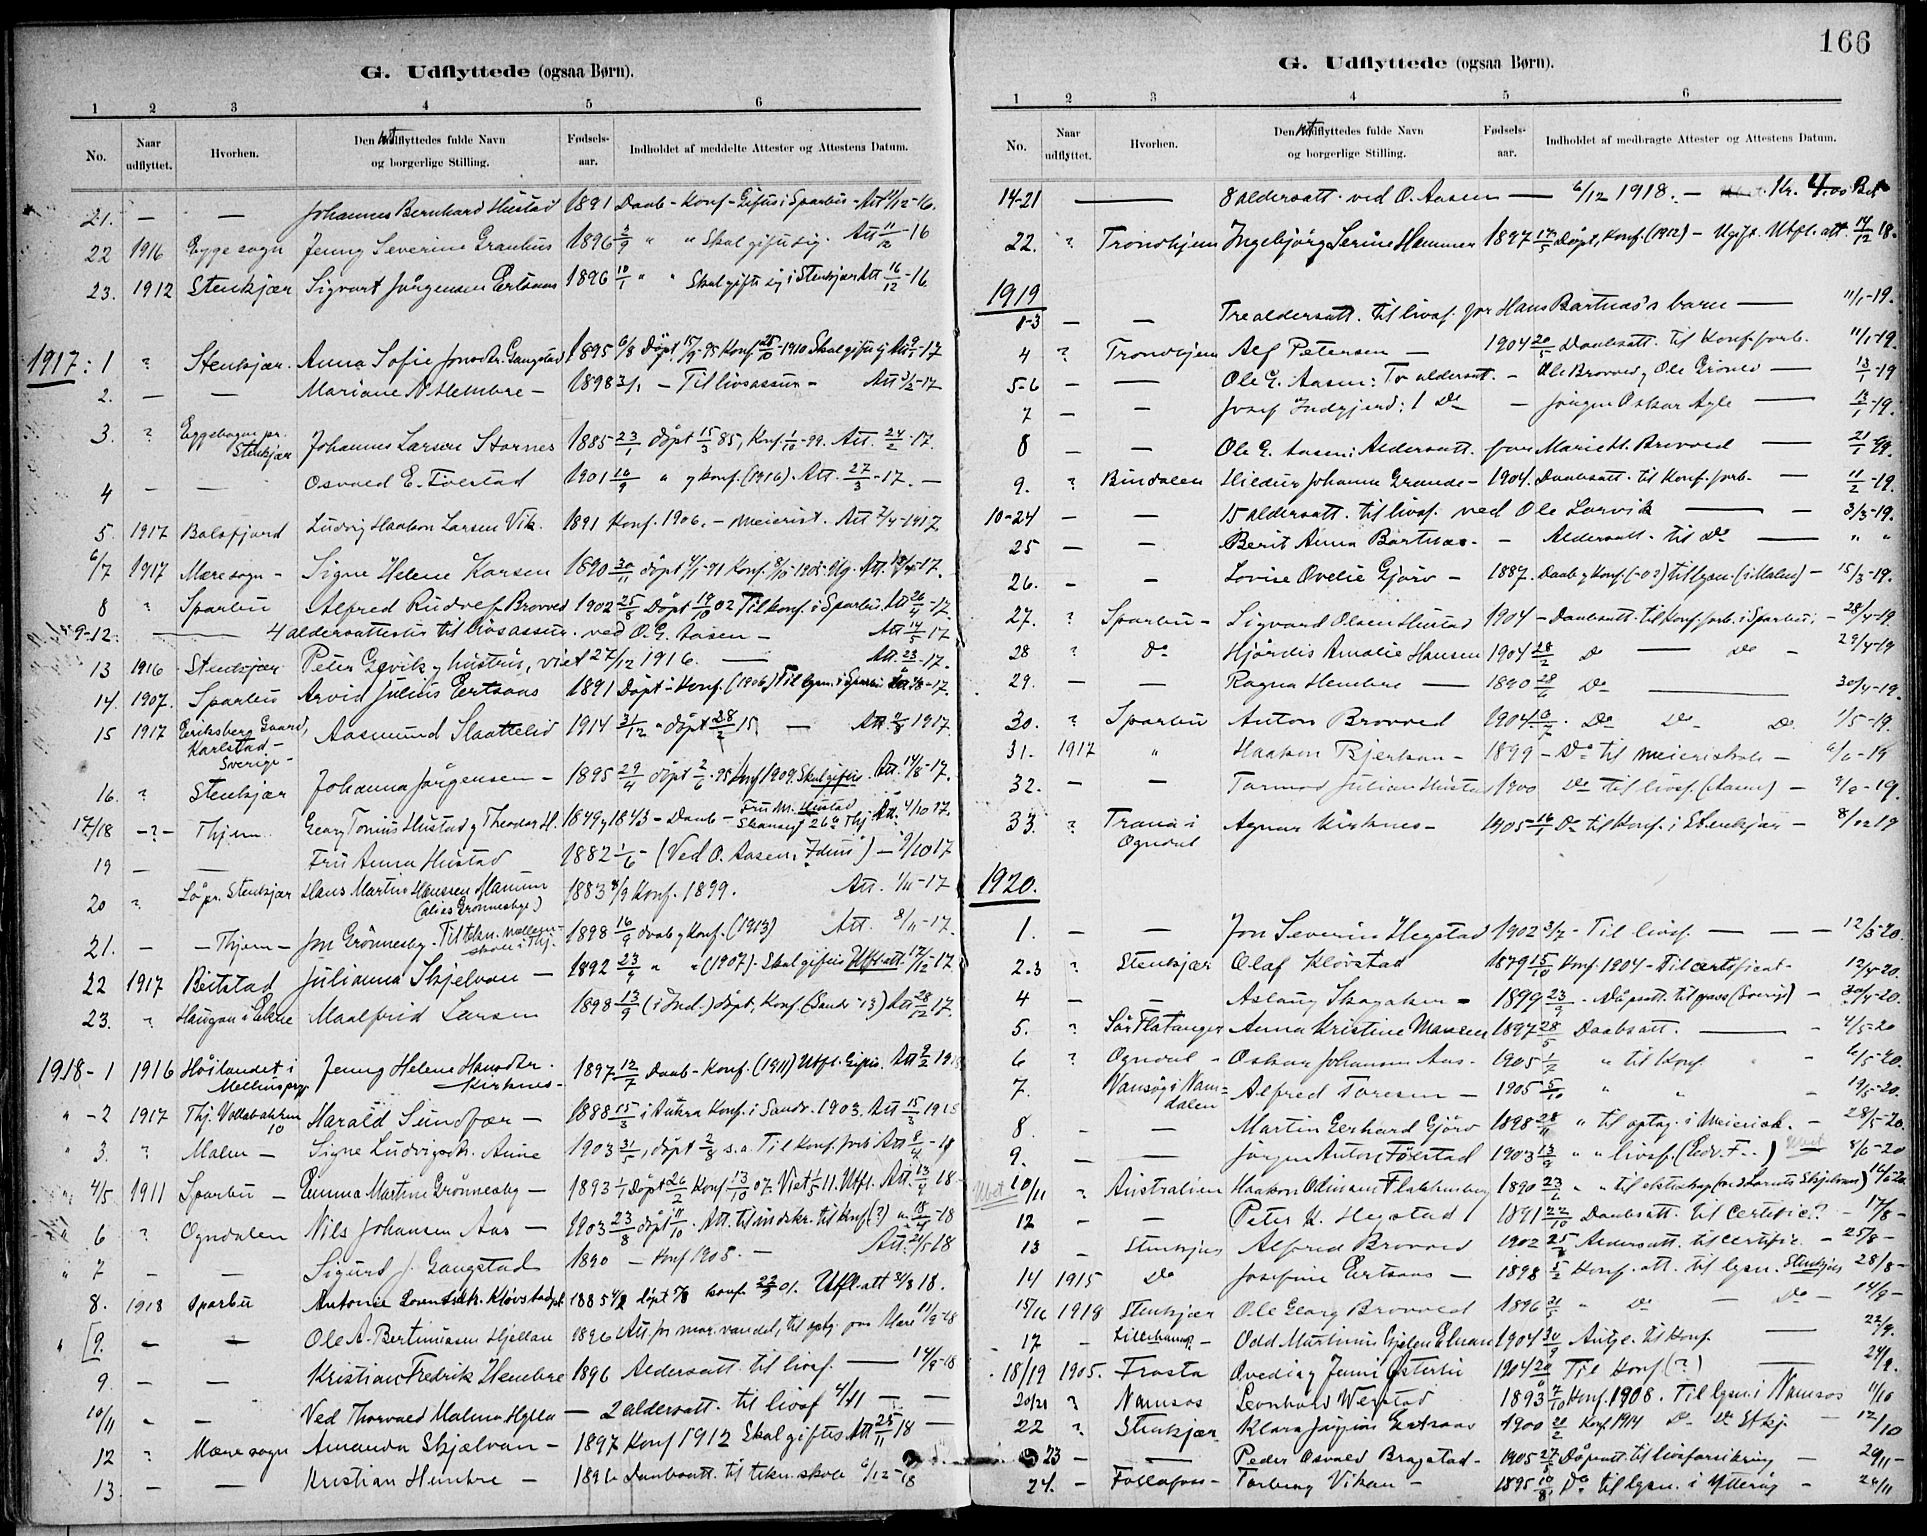 G. Udflyttede (ogsaa Børn).
1 2 3 4 5 6
No. Naar udflyttet. Hvorhen. Den Udflyttedes fulde Navn og borgerlige Stilling. Fødsels-aar. Indholdet af meddelte Attester og Attestens Datum.
21. — — Johannes Bernhard Hustad 1891 Daab - Konf - Giftes i Sparbu - Att 11/12-16.
22 1916 Egge sogn Jenny Severine 1896 " " Skal gifte sig. Att 11/12 16
23. 1912 Stenkjær Sigvart Jørgensen Ertsaas 1896 10/1 " " Skal gifte sig i Stenkjær Att 16/12-16
1917: 1 ? Stenkjær. Anna Sofie Gangstad 1895 6/8 Døpt 15/9-95 Konf 25/10-1910 Skal gifte sig Att 9/1-17
2. — — Mariane N. Hembre - 1898 3/1 - Til livsassur - Att 3/2-17
3. ? Eggebogen pr. Stenkjær Johannes Larsen Stornes 1885 23/1 døpt 15/3 85, Konf. 1/10-99. Att. 24/2-17.
4 — — Osvald E. Folstad 1901 20/9 " y konf. (1916). Att. 27/3-17. —
5. 1917 Balsfjord Ludvig Haakon Larsen Vik. 1891 Konf. 1906. - meierist. Att 2/4-1917
6/7 1917 Mære sogn - Signe Helene Karsen 1890 30/11 døpt 1/1-91 Konf. 1905. Ug. Att. -17.
8 " Sparbu Alfred Rudolf Brovold 1902 25/8 Døpt 19/10 02 Til konf. i Sparbu. Att 26/4-17.
9-12. — 4 aldersattester til livsassur. ved O. G. Aasen - Att 14/5 17
13 1916 Stenkjær Peter Gjevik y hustru, viet 27/12 1916. — Att. 23/6-17.
14. 1907. Sparbu Arvid Julius Ertsaas 1891 Døpt - Konf. (1906) Til lysn. i Sparbu -17.
15 1917 Eriksberg Gaard, Karlstad - Sverige - Aasmund Slaattelid 1914 31/12 døpt 28/2 15 — Att 1917
16. ? Stenkjær Johanna Jørgensen - 1895 29/4 døpt 2/6-95 Konf 1909. Skal giftes. Att. 14/8-17.
17/18 -?- Thjem. Georg Tonius Hustad y Theodor H. 1849 y 1843 - Daab - Fru M. Hustad Skansegt 26 Thj. Att. 4/10 17.
19 — — Fru Anna Hustad 1882 1/6 - (Ved O. Aasen, "Idun") - 9/10 17
20 ? Lø pr. Stenkjær Hans Martin Hanssen Mamen (alias Grønnesbye) 1883 Konf. 1899. Att. 1/11-17
21. — - Thjem - Jon Grønnesby. Til tekn. mellemskole i Thj. 1898 16/9 daab y Konf. (1913) Att. 8/11-17.
22 1917 Beitstad Julianna Skjelvan - 1892 23/9 " " (1907). Skal giftes Utfl. att. 17/12-17.
23. " Haugan i Ekne Maalfrid Larsen 1898 13/9 (i Ind.) døpt, Konf. Att 28/12 17.
1918 - 1 1916 Høilandet i Jenny Helene Hansdtr. Kirknes - 1897 12/7 Daab - Konf. (1911) Utfl. Giftes. Att 9/2 1918
" - 2 1917 Thj. Vollabakken 10 Harald Sundfær - 1888 15/3 i Aukra Konf. i Sandv. 1903. Att 15/3 1918
" 3. ? Malm - Signe Ludvigsdr. Aune 1903 31/5, døpt 2/8 s.a. Til Konf. forb. Att 8/4-18
" 4/5 1911 Sparbu - Emma Martine Grønnesby - 1893 1/1 Døpt 26/2 Konf 13/10 07. Viet 1/5 11. Utfl. Att. 13/4 18 -
6 ? Ogndalen Nils Johansen Aas - 1903 23/8 døpt 11/10. Att. til indskr. til Konf (?) " 18/4-18
" 7 — — Sigurd J. Gangstad 1890 - Konf 1905. - Att. 21/5 18
8. 1918 Sparbu Antonie Kløvstad 1885 døpt konf. Utfl. att 18.
" [9. — — Ole A. Bertinusen Hjellan 1896 Att. for mor. vandel, til optg. paa Mære 11/9-18
9 — — Kristian Fredrik Hembre 1896 Aldersatt. til livsf. — 14/9-18
10/11 — — Ved Thorvald Malmo Hylla - 2 aldersatt. til livsf 4/11 — —
12 ? Mære sogn Amanda Skjelvan - 1897 Konf 1912 Skal giftes Att 25/11 18 —
13. — — Kristian Hembre - 1896 Daabsatt. til tekn. skole 6/12-18
166
G. Udflyttede (ogsaa Børn).
1 2 3 4 5 6
No. Naar udflyttet. Hvorhen. Den Udflyttedes fulde Navn og borgerlige Stilling. Fødsels-aar. Indholdet af medbragte Attester og Attestens Datum.
14-21 — 8 aldersatt. ved O. Aasen — 6/12 1918. - Kr. 4,00 Bet
22. ? Trondhjem Ingebjørg Serine Hammer 1897 17/5 Døpt, Konf. (1912) - Ugift. Utfl. att. 14/12 18.
1919
1-3 — — Tre aldersatt. til livsf. for Hans Bartnæs's barn — 11/1-19.
4 ? Trondhjem Alf Petersen - 1904 20/5 Daabsatt. til Konf. forb. 11/1-19.
5-6 — — Ole G. Aasen: To aldersatt. - Ole Brovold y Ole — 13/1-19
7 — — Josef Indgjerd: 1 Do - Jørgen Oskar — 13/1-19.
8 — — Ole G. Aasen: Aldersatt. for Marie H. Brovold — 21/1-19.
9. ? Bindalen Hildur Johanna Grande - 1904. Daabsatt. til Konf. forb. — 11/2-19.
10-24 — — 15 aldersatt. til livsf. ved Ole Lorvik — 3/3-19.
25 — — Berit Anna Bartnæs. - Aldersatt. til Do — " "
26. — — Lovise Ovelie Gjørv - 1887. Daab y Konf. (-02) til lysn. (i Malm) - 15/3-19.
27. ? Sparbu - Sigvard Olsen Hustad 1904 - Daabsatt. til Konf. forb. i Sparbu; - 28/4-19
28 ? Do Hjørdis Amalie Hansen 1904 28/2 Do — Do - 29/4-19
29. — — Ragna Hembre — 1890 28/6 Do — 30/4-19.
30. ? Sparbu Anton Brovold 1904 6/7. Do Do Do 1/5-19.
31. 1917 " Haakon Bjerkan - 1899 - Do til meieriskole - 6/6-19
32. — — Tormod Julian Hustad 1900 Do til livsf. (Aasen) - -19.
33. ? Trana i Ogndal Agnar Kirknes - 1905 16/1 Do til Konf. i Stenkjær - 8/12 19
1920.
1. — — Jon Severin Hegstad 1902 3/7 - Til livsf. — — 12/3-20.
2.3 ? Stenkjær Olaf Kløvstad 1879 15/10 Konf. 1904 - Til certificat - 12/4-20.
4 — — Aslaug Skagaker - 1899 23/9 - Dåpsatt. til pass (Sverige) - 30/4-20.
5. ? Sør Flatanger Anna Kristine 1897 28/5 Daabsatt. — 4/5-20
6 ? Ogndal - Oskar Johansen Aas - 1905 1/2 " til Konf. " - 6/5-20.
7. Vansøy i Namdalen Alfred Toresen - 1905 5/10 " " - 19/5-20.
8. — — Martin Gerhard Gjørv 1898 28/11 " til optag. i Meierisk. - 28/5-20.
9. — — Jørgen Anton Følstad 1903 13/9 " " livsf. (Ledv. F..) Ubet 8/6-20
Ubet 10/11 ? Australien Haakon Olinsen 1890 23/6 " " til ekteskap 16/6 20
12 — — Peter K. Hegstad 1891 22/10 Daabsatt. til certific.? - 17/8 -
13 — Stenkjær Alfred Brovold 1902 25/8 Aldersatt. til certific. - 25/8 -
14 1915 Do Josefine Ertsaas - 1898 5/2 Konf. att. til lysn. Stenkjær 28/8 -
15/16 1918 Stenkjær Ole Georg Brovold 1896 21/5 " Do - Do - 14/9 -
17 — Lillehamr. - Odd Martinius 1904 30/9 Til Konf. — 22/9.
18/19 1905. Frosta Ovedie y Jenni Østerlie 1904 20/8 Til Konf (?) — 24/9.
20/21 ? Namsos Leonhard Werstad 1893 4/10 Konf. 1908. Til lysn. i Namsos 11/10
22 ? Stenkjær Klara Ertsaas 1900 21/2 Konf 1914 Do Do Stkj. - 12/10
23 — — Peder Osvald Bragstad - 1905 27/8 Dåpsatt. til livsforsikring - 29/11 -
24. — Follafoss - Torberg Vikan - 1895 10/8 Do til lysn. i Ytterøy - 24/11